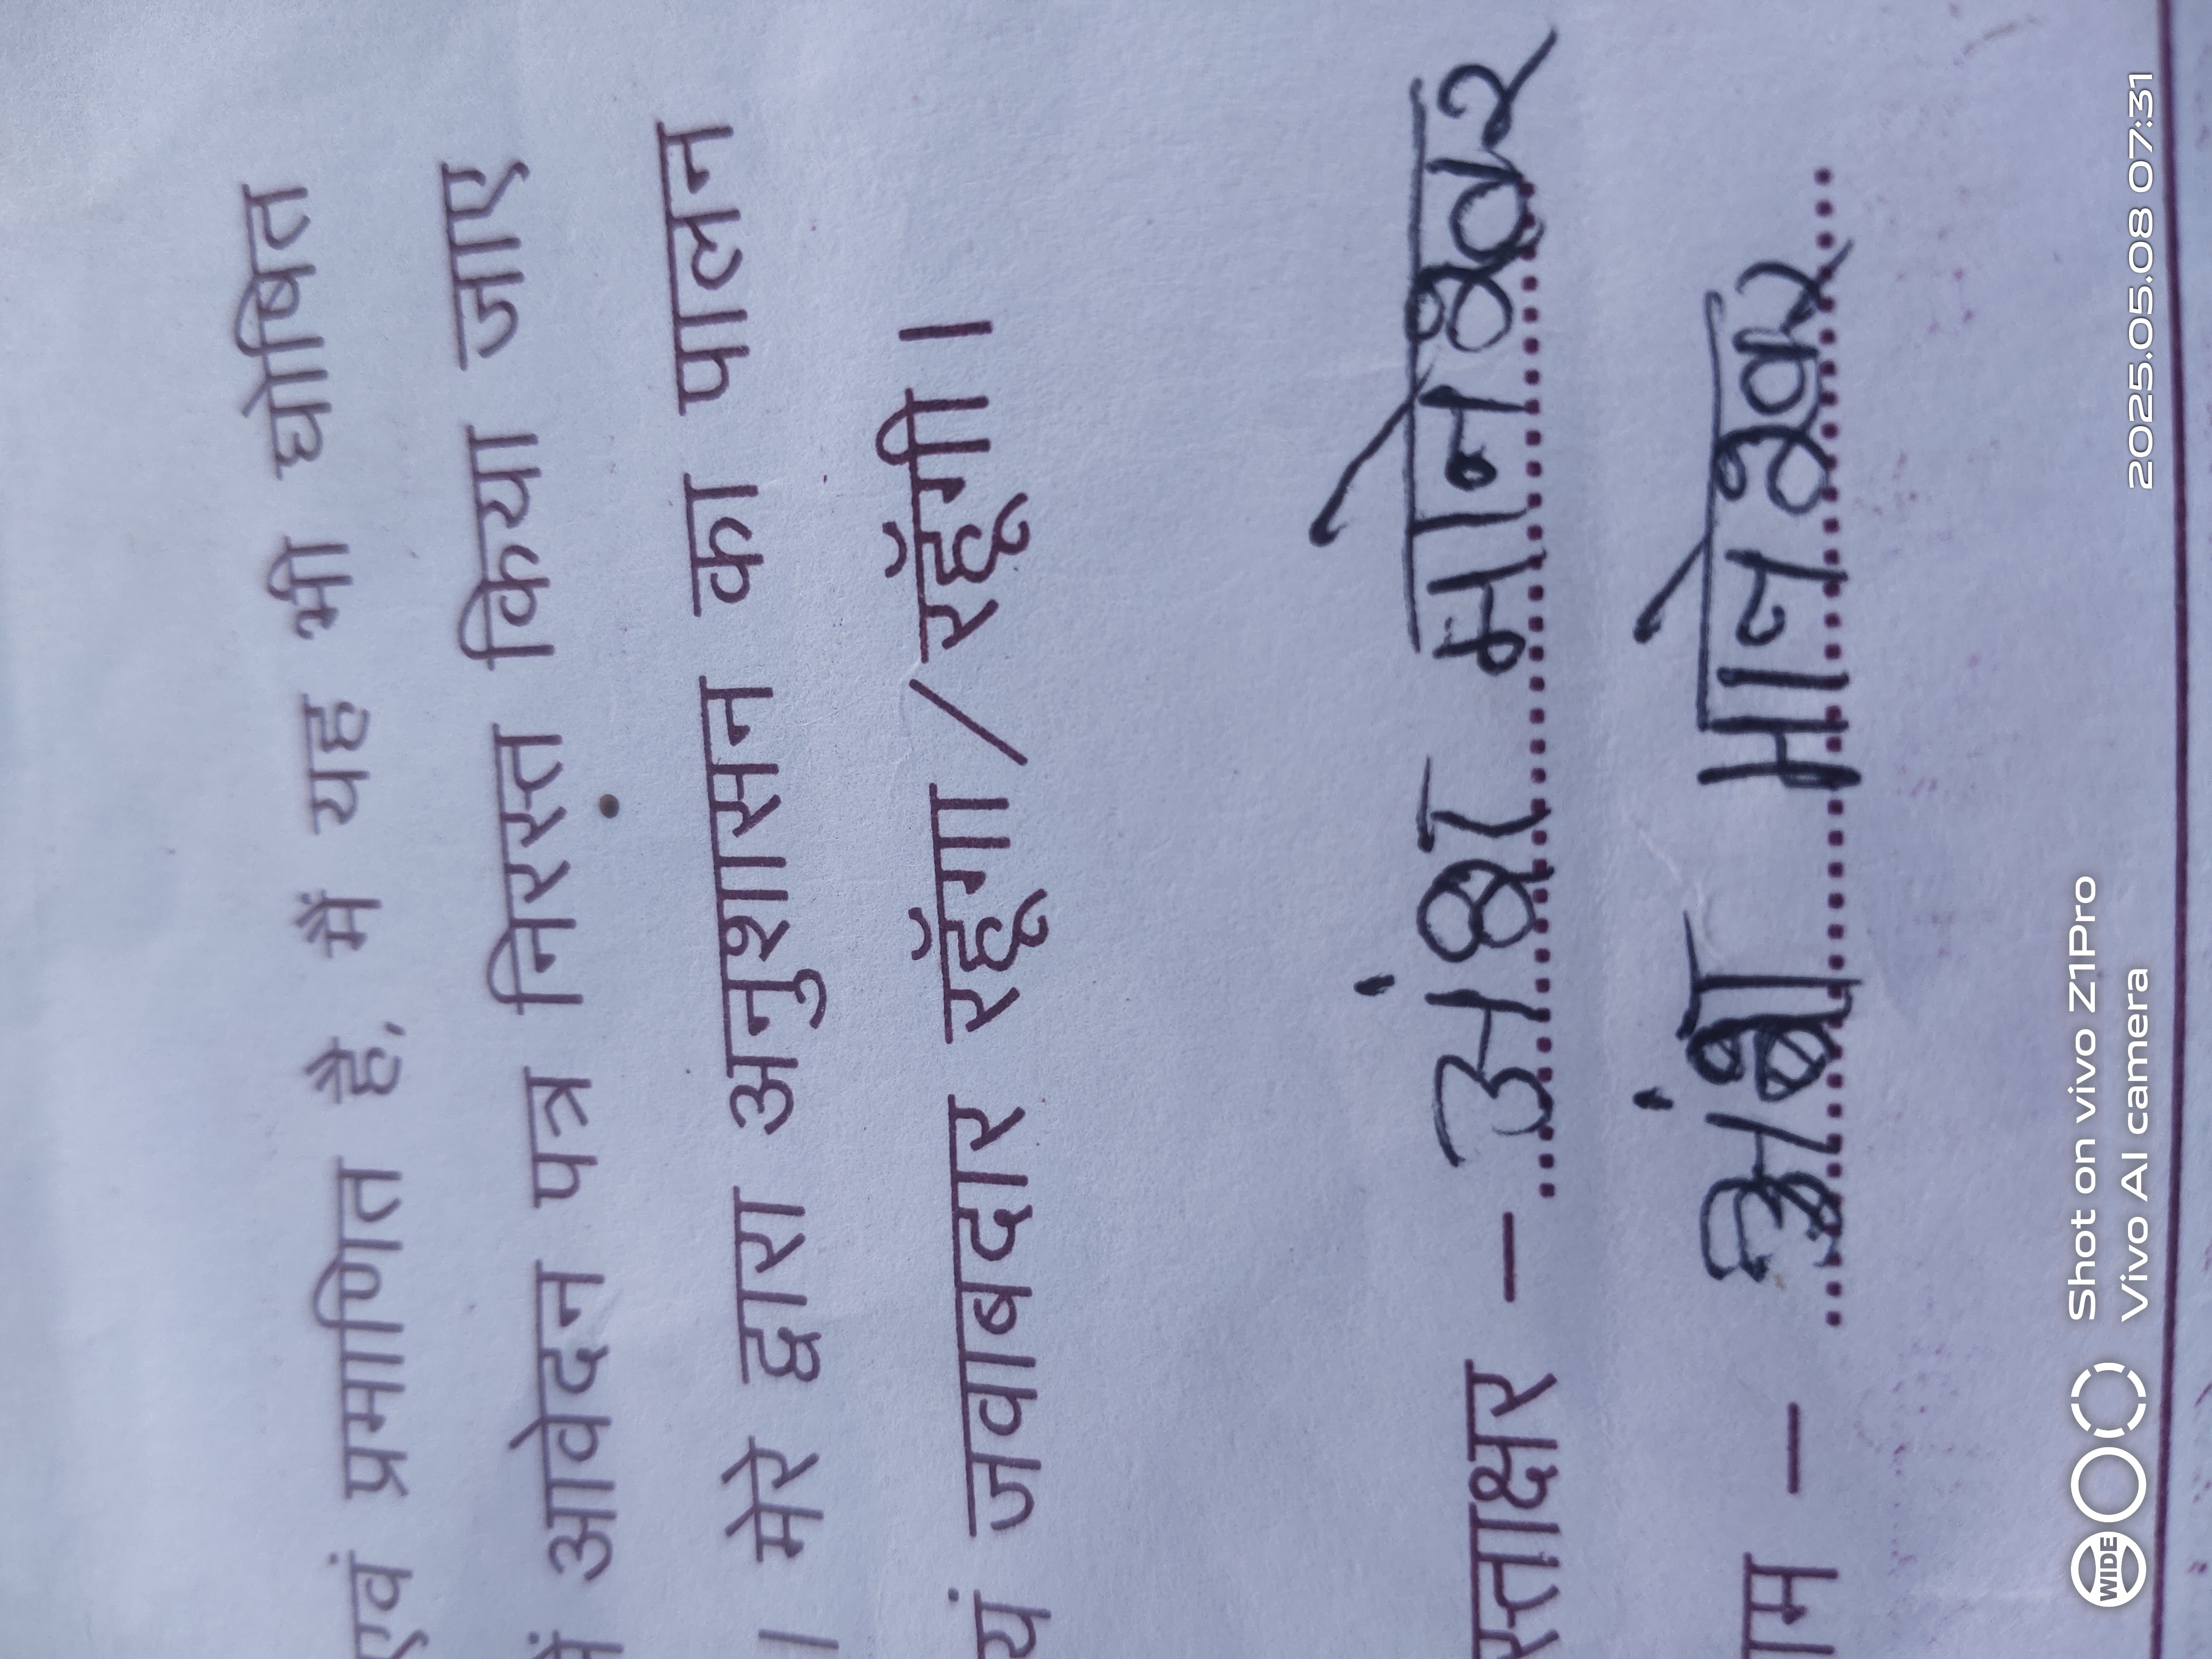 एवं प्रमाणित है, मैं यह भी घोषित
में आवेदन पत्र निरस्त किया जाए
। मेरे द्वारा अनुशासन का पालन
यं जवाबदार रहूँगा / रहूँगी ।
स्ताक्षर - अंश मानेश्वर
ाम - अंश मानेश्वर
WIDE
Shot on vivo Z1Pro
Vivo AI camera
2025.05.08 07:31